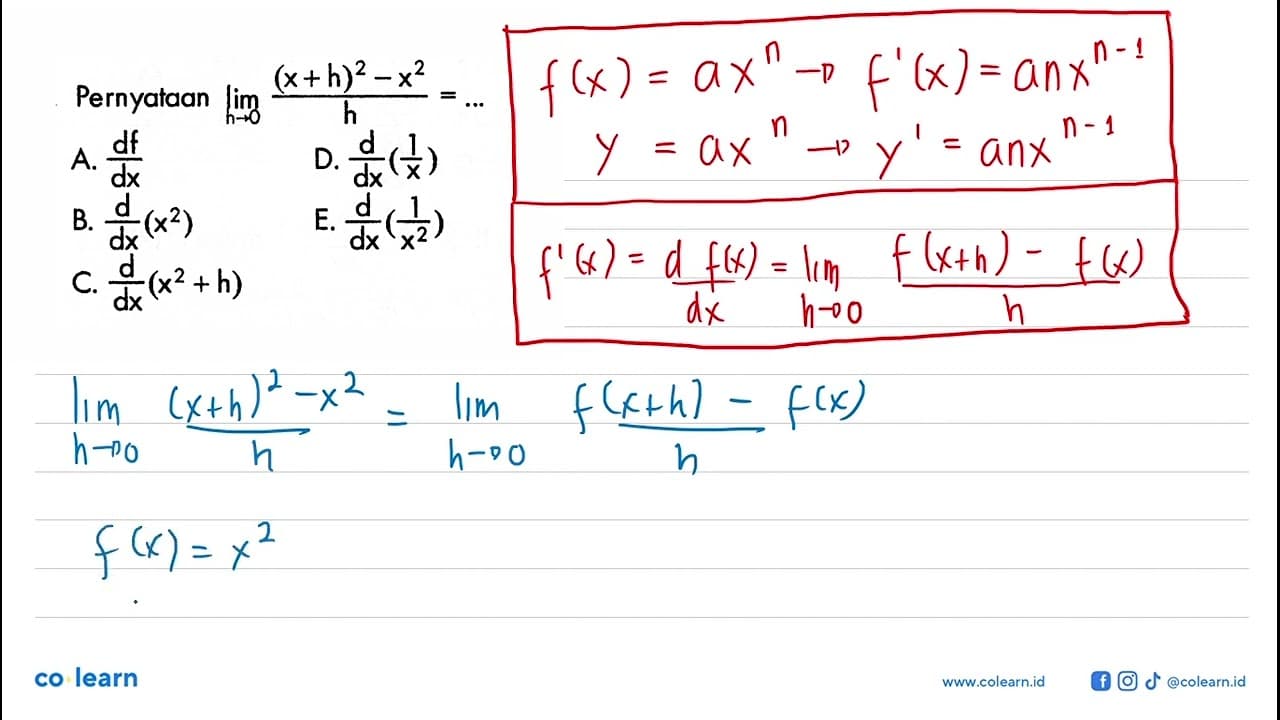 Pernyataan lim h→0 (x+h)² – x² / h = ...
A. df/dx
B. d/dx (x²)
C. d/dx (x² + h)
D. d/dx (1/x)
E. d/dx (1/x²)
f(x) = axⁿ → f'(x) = anxⁿ⁻¹
y = axⁿ → y' = anxⁿ⁻¹
f'(x) = d f(x)/dx = lim h→0 f(x+h) - f(x) / h
lim h→0 (x+h)² - x² / h = lim h→0 f(x+h) - f(x) / h
f(x) = x²
co learn
www.colearn.id
@colearn.id